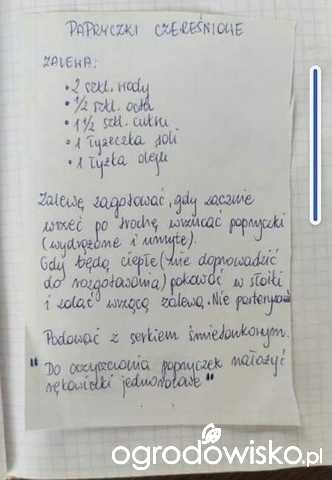 PAPRYCZKI CZEREŚNIOWE
ZALEWA:
• 2 szkl. wody
• 1/2 szkl. octu
• 1 1/2 szkl. cukru
• 1 łyżeczka soli
• 1 łyżka oleju
Zalewę zagotować, gdy zacznie
wrzeć po trochę wrzucać papryczki
(wydrążone i umyte).
Gdy będą ciepłe (nie doprowadzić
do rozgotowania) pakować w słoiki
i zalać wrzącą zalewą. Nie pasteryzować
Podawać z serkiem śmietankowym.
"Do oczyszczania papryczek nałożyć
rękawiczki jednorazowe"
ogrodowisko.pl